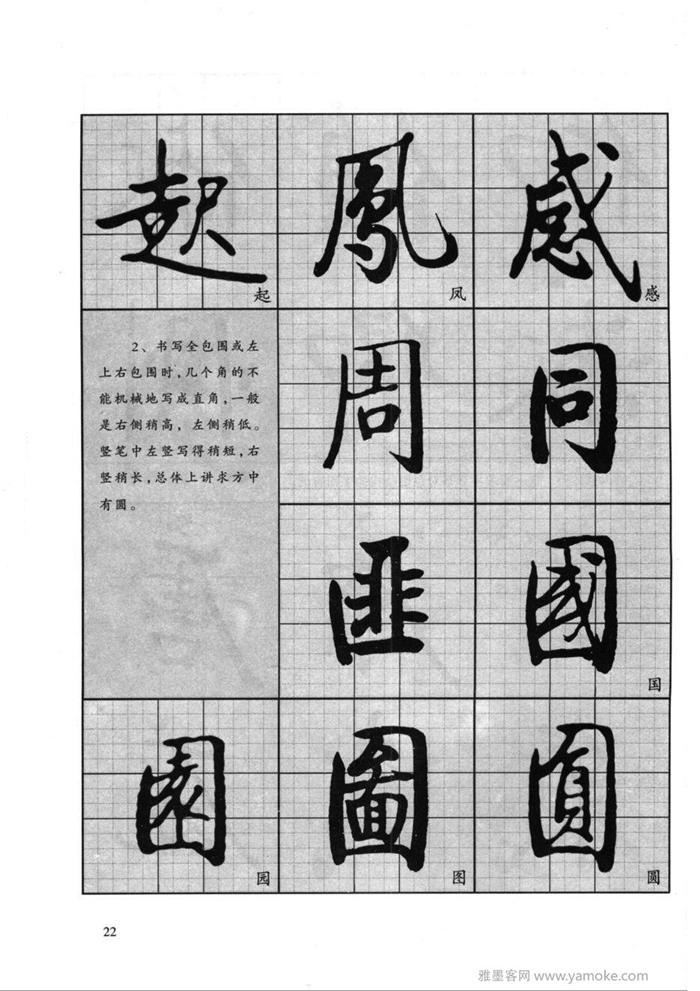 起 鳳 感
起 凤 感
2、书写全包围或左
上右包围时,几个角的不
能机械地写成直角,一般
是右侧稍高,左侧稍低。
竖笔中左竖写得稍短,右
竖稍长,总体上讲求方中
有圆。
周 同
匪 國
国
園 圖 圓
园 图 圆
22
雅墨客网 www.yamoke.com